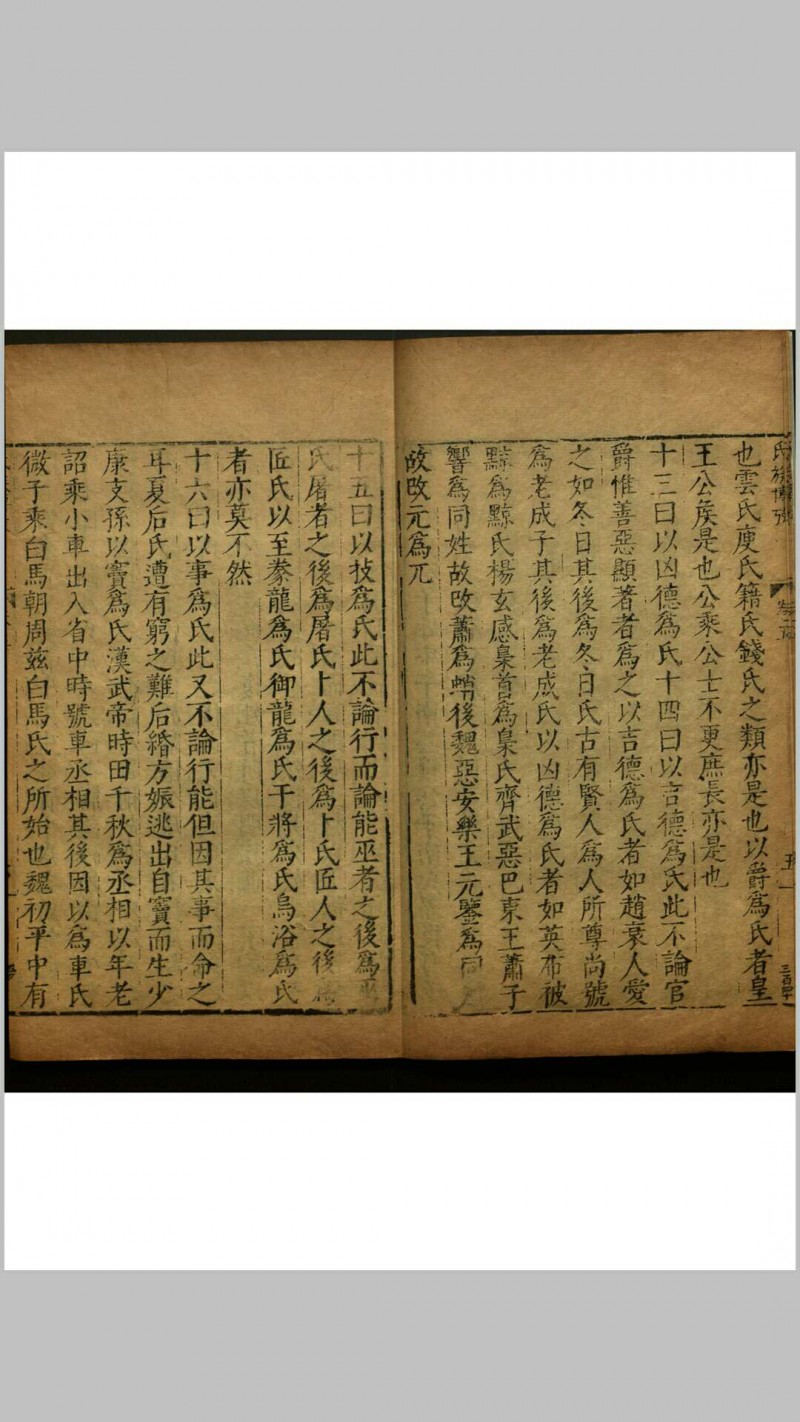 氏族博攷
卷二
五
三百四十
也雲氏庾氏籍氏錢氏之類亦是也以爵爲氏者皇
王公侯是也公乘公士不更庶長亦是也
十三曰以凶德爲氏十四曰以吉德爲氏此不論官
爵惟善惡顯著者爲之以吉德爲氏者如趙衰人愛
之如冬日其後爲冬日氏古有賢人爲人所尊尚號
爲老成子其後爲老成氏以凶德爲氏者如英布被
黥爲黥氏楊玄感梟首爲梟氏齊武惡巴東王蕭子
響爲同姓故改蕭爲蛸後魏惡安樂王元鑒爲同
故改元爲兀
十五曰以技爲氏此不論行而論能巫者之後爲巫
氏屠者之後爲屠氏卜人之後爲卜氏匠人之後爲
匠氏以至豢龍爲氏御龍爲氏干將爲氏烏浴爲氏
者亦莫不然
十六曰以事爲氏此又不論行能但因其事而命之
耳夏后氏遭有窮之難后緡方娠逃出自竇而生少
康支孫以竇爲氏漢武帝時田千秋爲丞相以年老
詔乘小車出入省中時號車丞相其後因以爲車氏
微子乘白馬朝周茲白馬氏之所始也魏初平中有